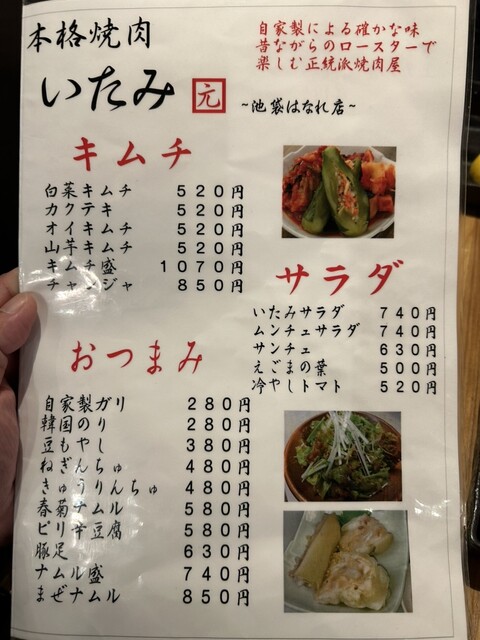 本格焼肉
いたみ 元 ~池袋はなれ店~
自家製による確かな味
昔ながらのロースターで
楽しむ正統派焼肉屋
キムチ
白菜キムチ 520円
カクテキ 520円
オイキムチ 520円
山芋キムチ 520円
キムチ盛 1070円
チャンジャ 850円
サラダ
いたみサラダ 740円
ムンチェサラダ 740円
サンチュ 630円
えごまの葉 500円
冷やしトマト 520円
おつまみ
自家製ガリ 280円
韓国のり 280円
豆もやし 380円
ねぎんちゅ 480円
きゅうりんちゅ 480円
春菊ナムル 580円
ピリ辛豆腐 580円
豚足 630円
ナムル盛 740円
まぜナムル 850円